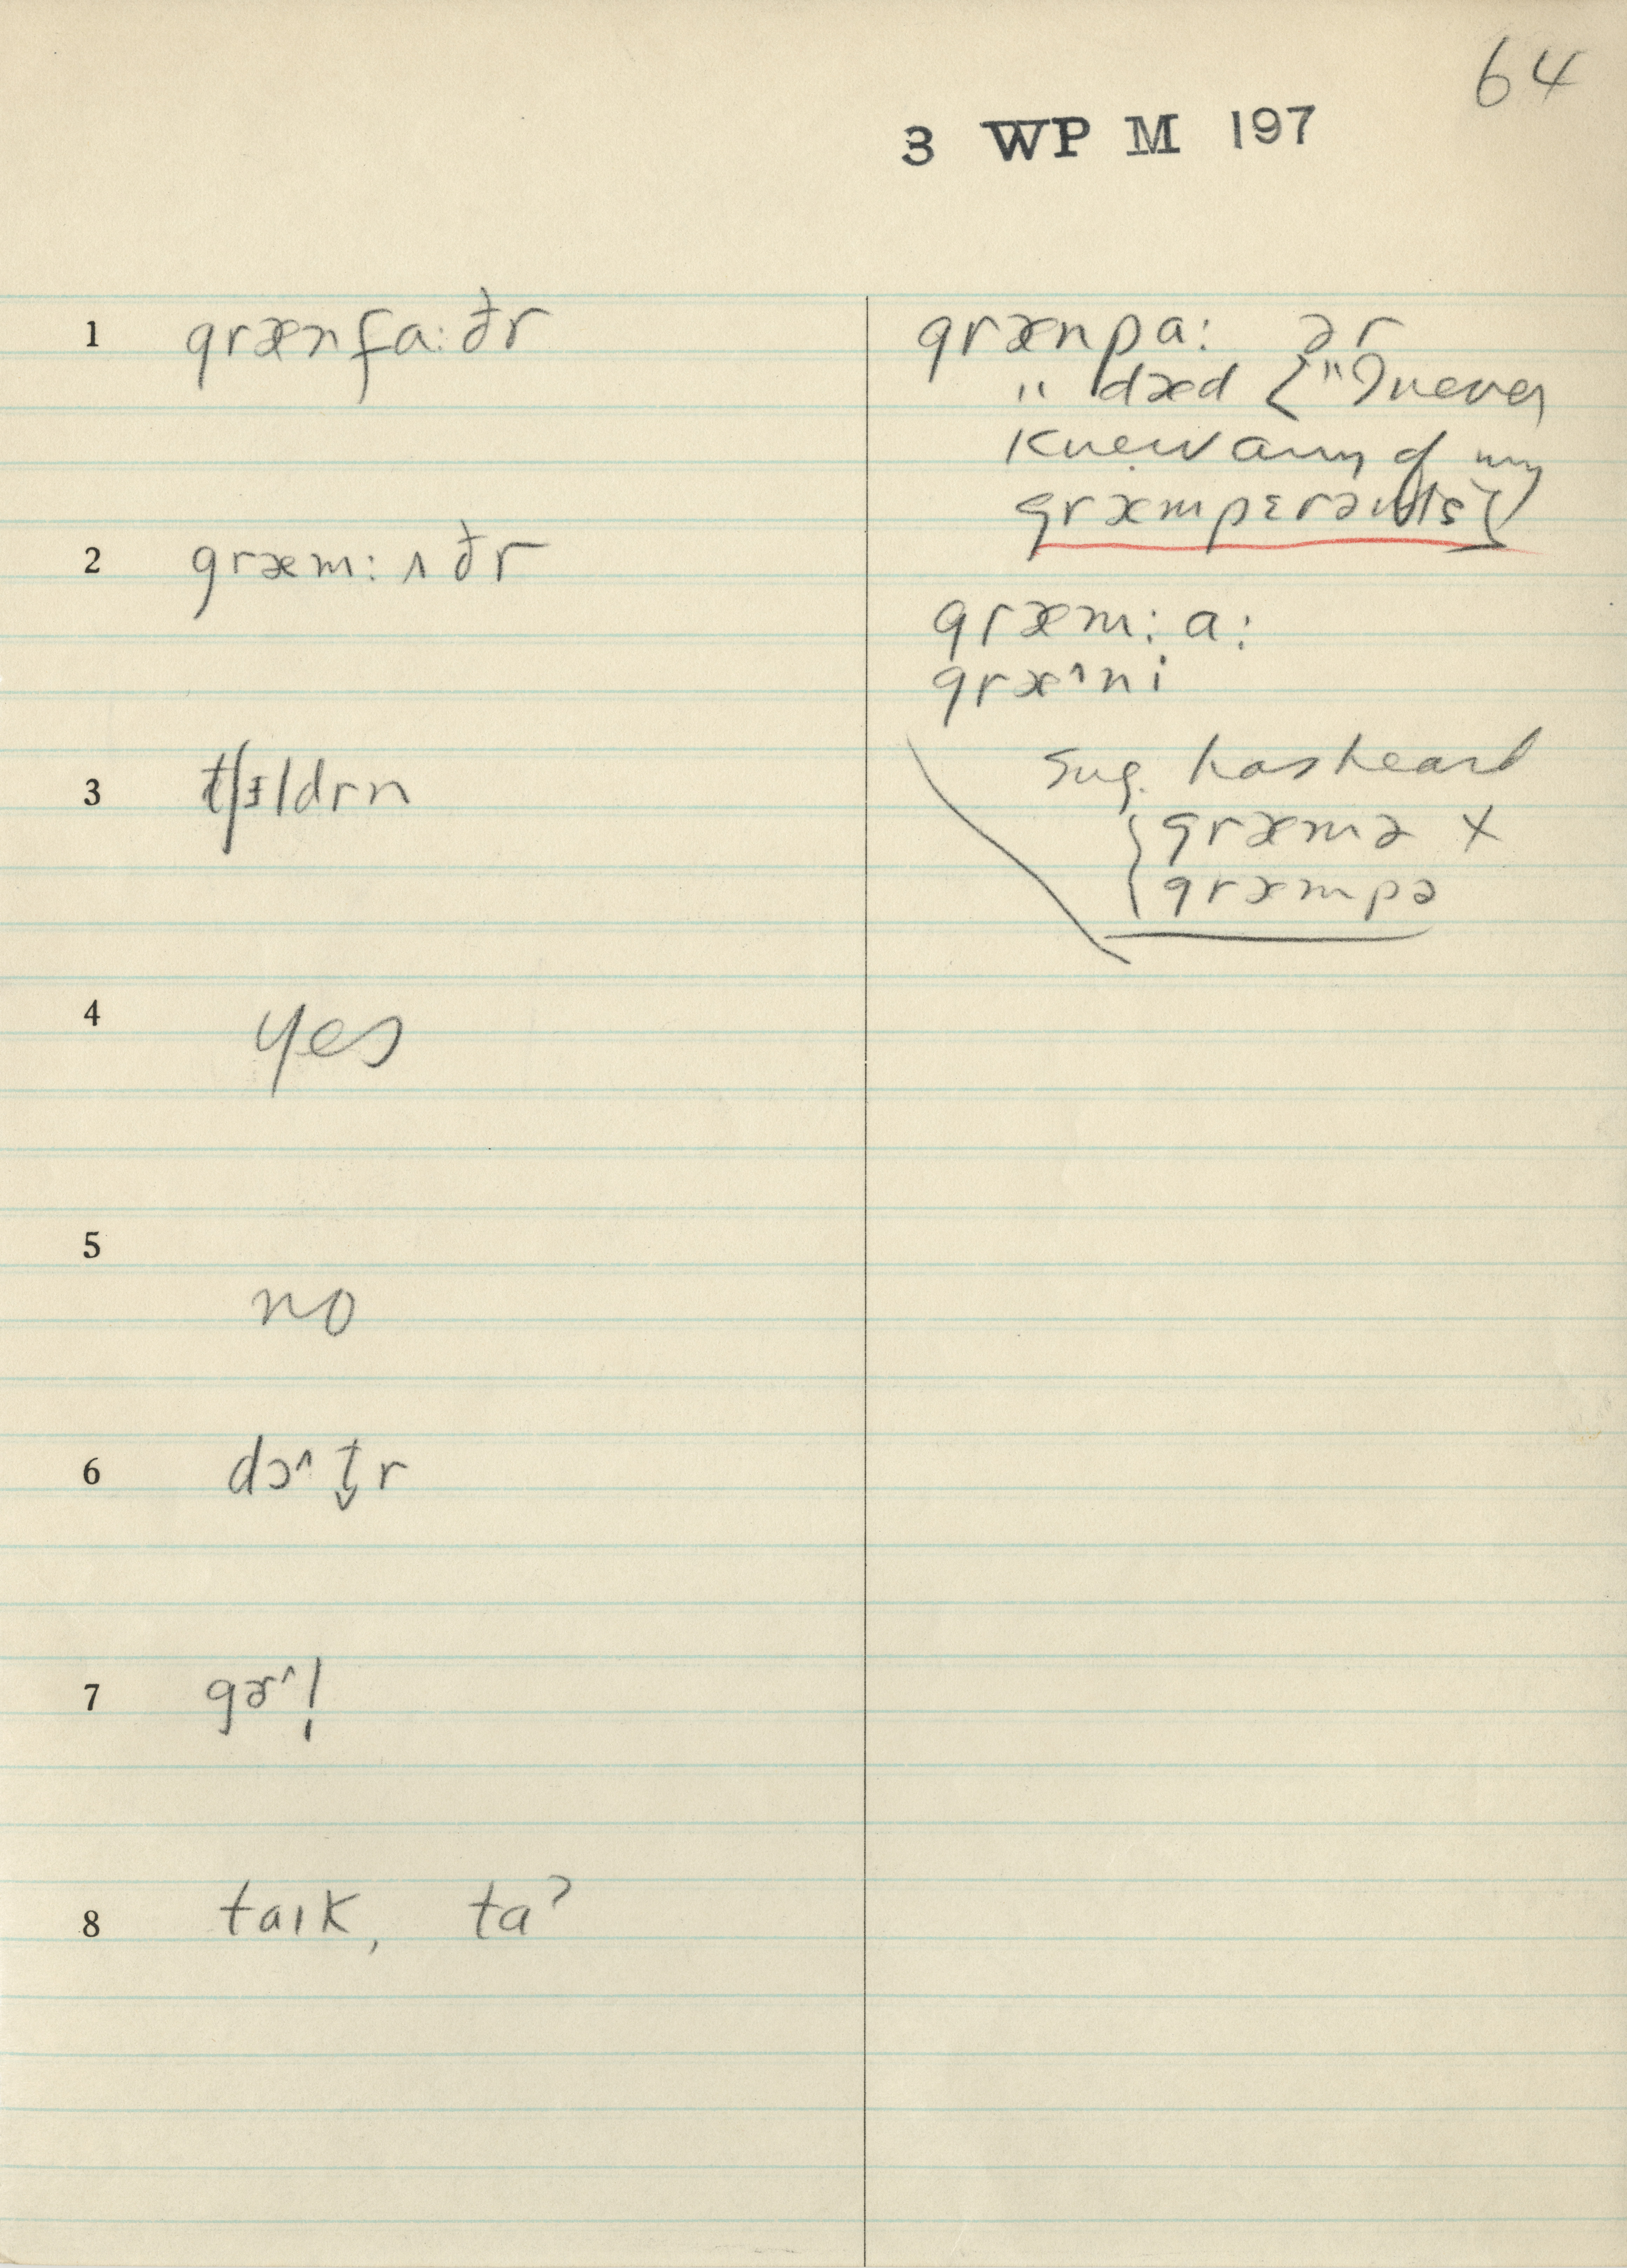 64
3 WP M 197
1 grænfa:ðr
grænpa: ər
" dæd {"I never
knew any of my
græmpɛrənts}
2 græm:ʌðr
græm:a:
græ^ni
3 tʃɪldrn
Sug. has heard
{græmə x
græmpə
4 yes
5 no
6 dɔ^t̬r
7 gɚ^l̩
8 taɪk, taʔ